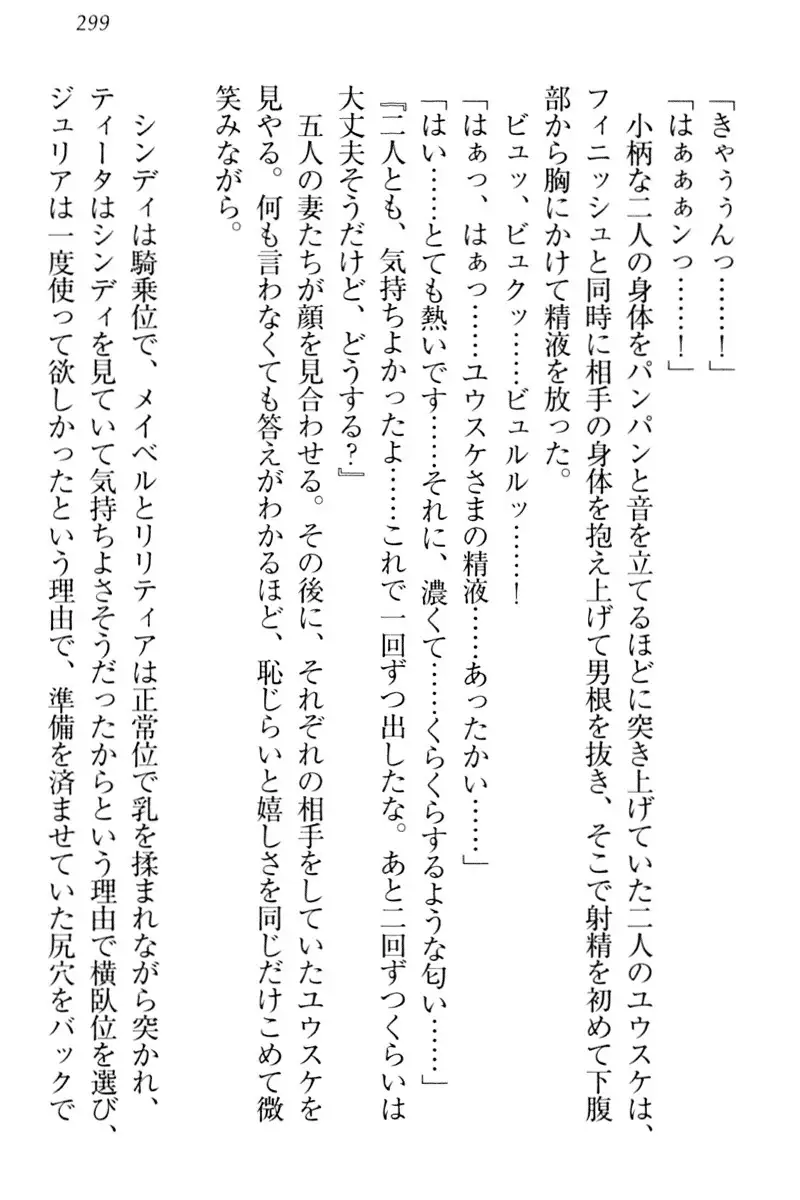 299
「きゃうぅんっ……！」
「はぁぁぁンっ……！」
小柄な二人の身体をパンパンと音を立てるほどに突き上げていた二人のユウスケは、
フィニッシュと同時に相手の身体を抱え上げて男根を抜き、そこで射精を初めて下腹
部から胸にかけて精液を放った。
ビュッ、ビュクッ……ビュルルッ……！
「はぁっ、はぁっ……ユウスケさまの精液……あったかい……」
「はい……とても熱いです……それに、濃くて……くらくらするような匂い……」
『二人とも、気持ちよかったよ……これで一回ずつ出したな。あと二回ずつくらいは
大丈夫そうだけど、どうする？』
五人の妻たちが顔を見合わせる。その後に、それぞれの相手をしていたユウスケを
見やる。何も言わなくても答えがわかるほど、恥じらいと嬉しさを同じだけこめて微
笑みながら。
シンディは騎乗位で、メイベルとリリティアは正常位で乳を揉まれながら突かれ、
ティータはシンディを見ていて気持ちよさそうだったからという理由で横臥位を選び、
ジュリアは一度使って欲しかったという理由で、準備を済ませていた尻穴をバックで